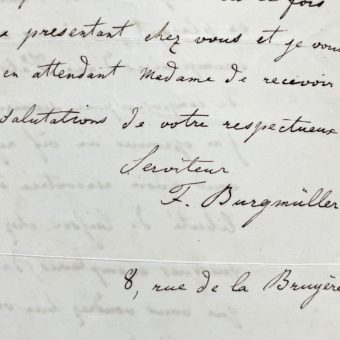 fois
presentant chez vous et je vous
en attendant Madame de recevoir
salutations de votre respectueux
Serviteur
F. Burgmüller
8, rue de la Bruyère